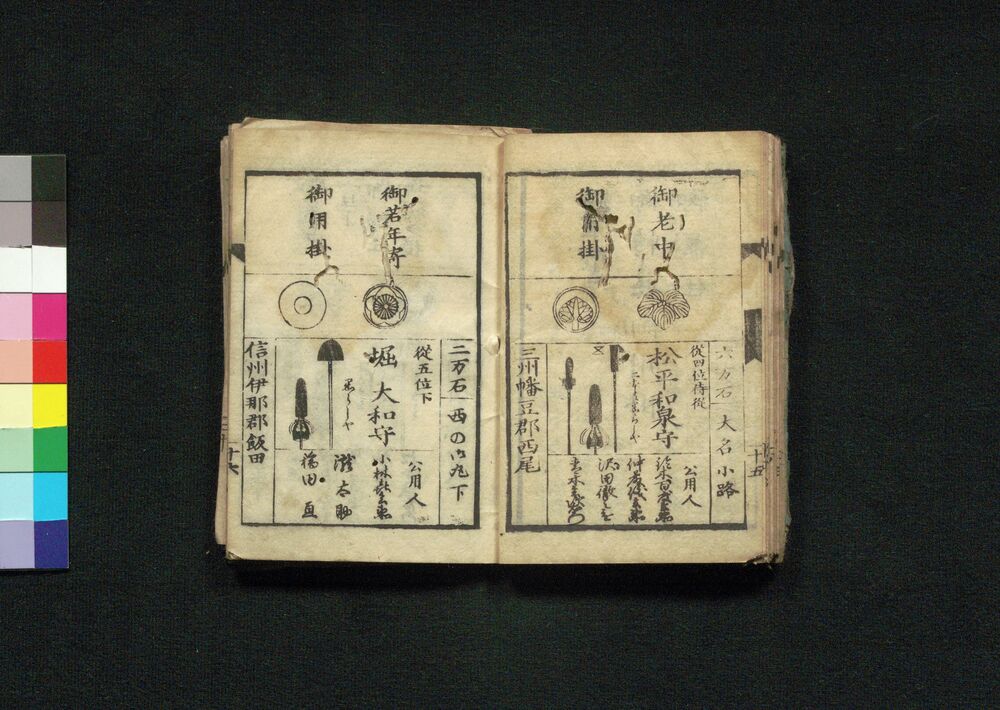 御老中
御用掛
六万石 大名小路
従四位侍従
松平和泉守
公用人
三州幡豆郡西尾
十五
御若年寄
御用掛
二万石 西の御丸下
従五位下
堀大和守
公用人
瀧太助
福田亘
信州伊那郡飯田
十六